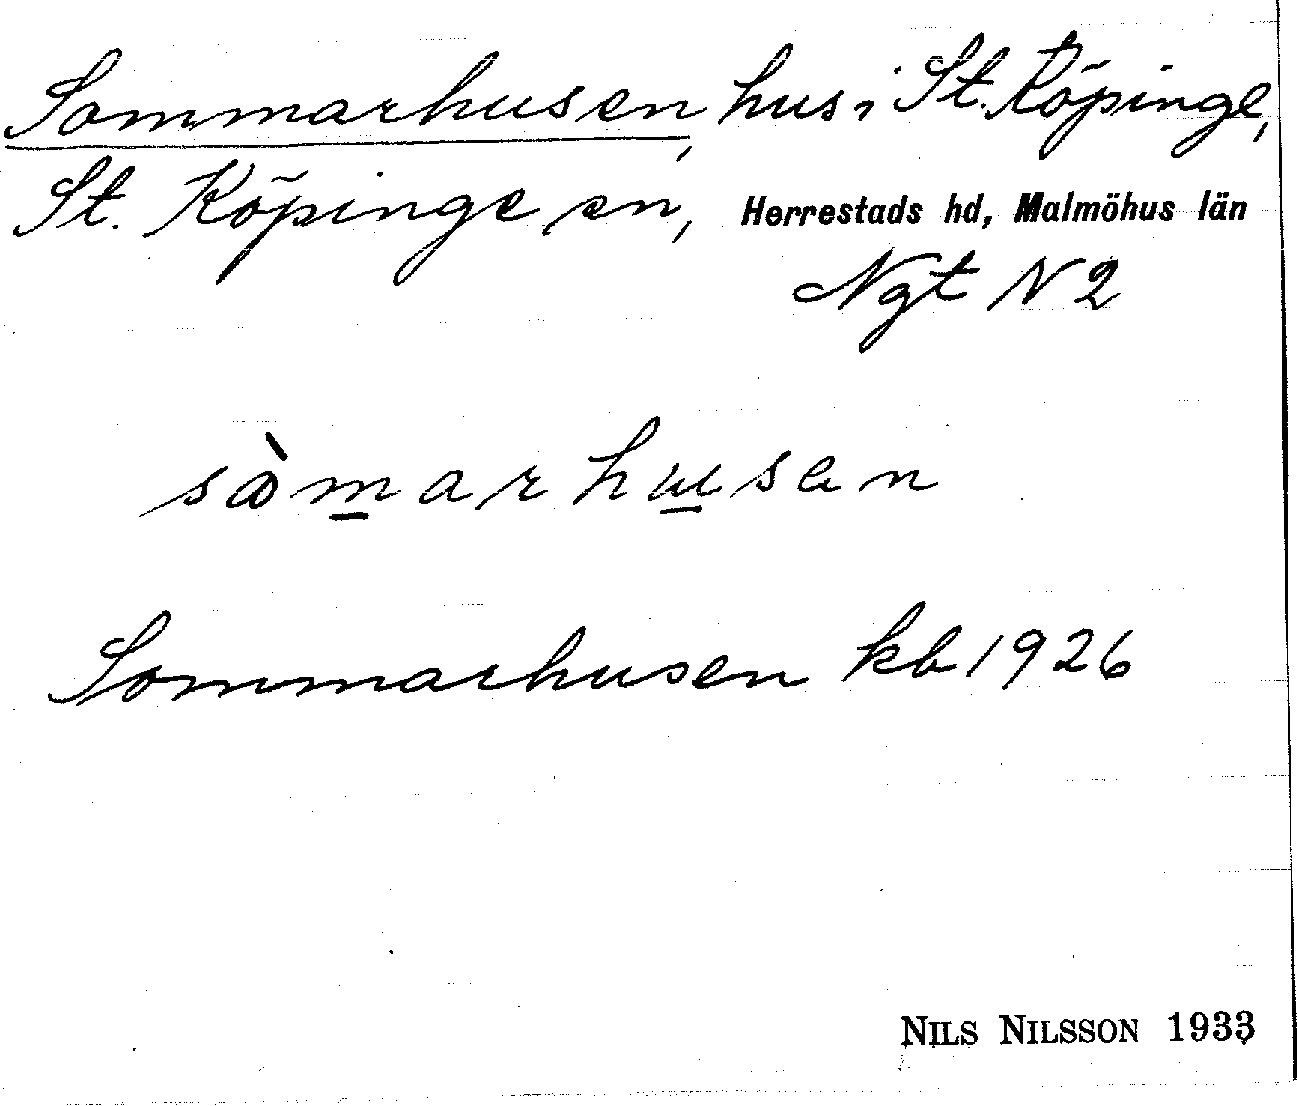 Sommarhusen, hus i St. Köpinge,
St. Köpinge sn, Herrestads hd, Malmöhus län
Ngt N 2
Sommarhusen kb 1926
NILS NILSSON 1933